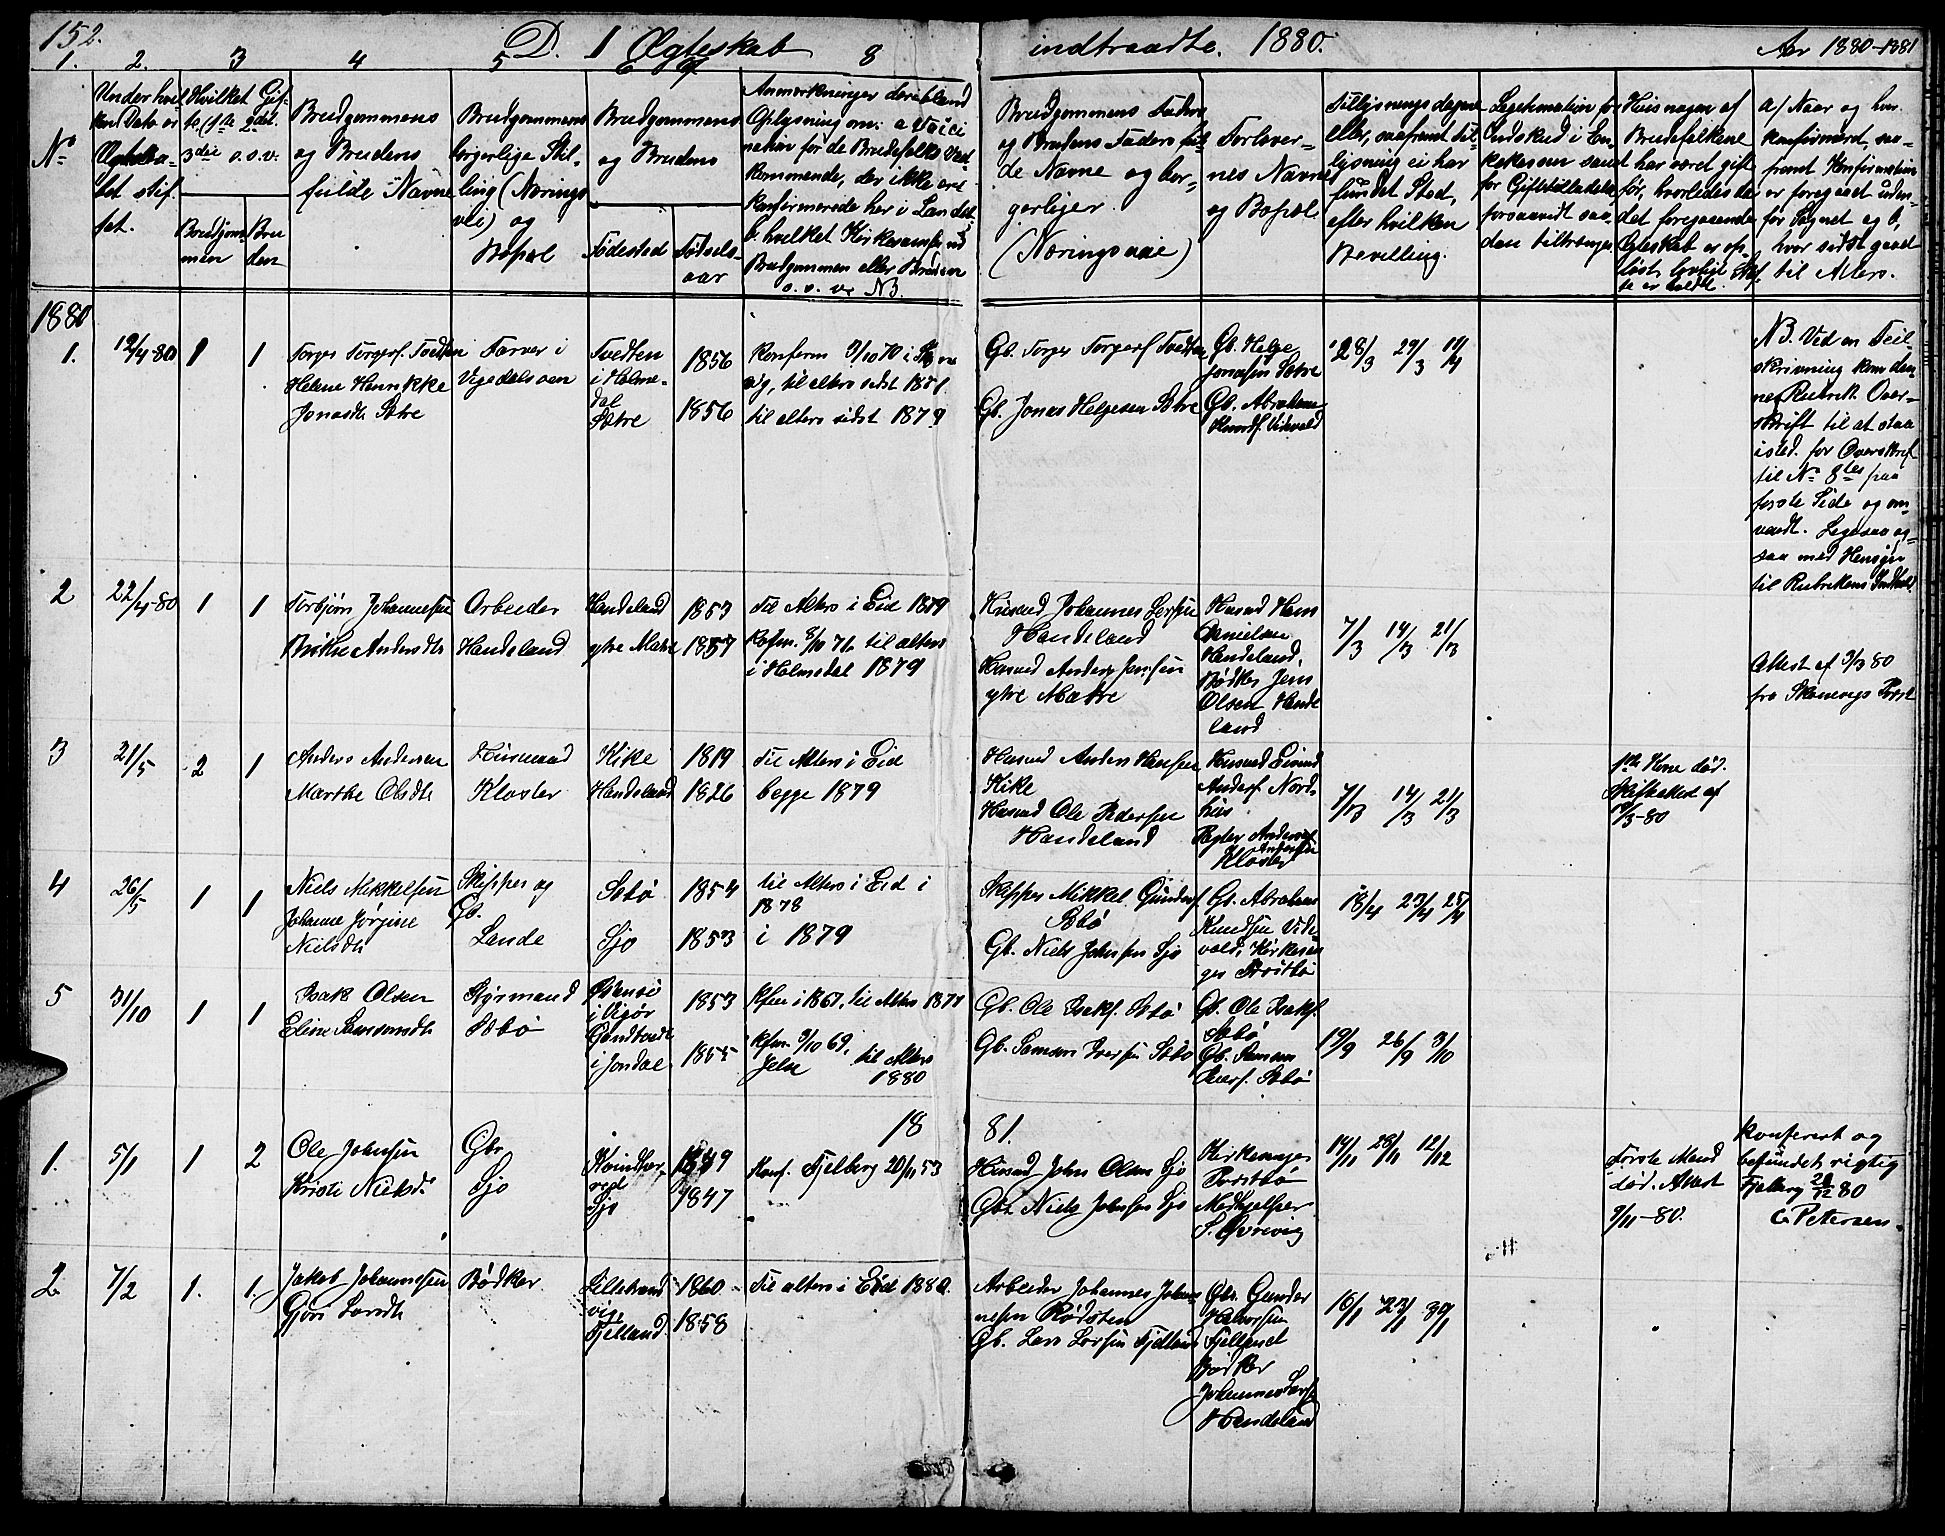 152.
D. I Ægteskab indtraadte. 1880.
Aar 1880-1881
1. 2. 3 4 5 6 7 8
No
Under hvil
ken Dato er
Ægteska-
bet stif
tet.
Hvilket Gif-
te (1ste 2det
3die o.s.v.
Brudgom-
men
Bru
den
Brudgommens
og Brudens
fulde Navne
Brudgommens
borgerlige Stil-
ling (Nærings
vei) og
Bopæl
Brudgommens
og Brudens
Fødested
Fødsels-
aar
Anmærkninger deriblandt
Oplysning om: a Vacci
nation for de Brudefolks Ved
kommende, der ikke ere
konfirmerede her i Landet,
b. hvilket Kirkesamfund
Brudgommen eller Bruden
o. s. v. NB.
Brudgommens Faders
og Brudens Faders ful-
de Navne og bor-
gerlige
(Næringsveie)
Forlover-
nes Navne
og Bopæl.
Tillysningsdagene
eller, saafremt til-
lysning ei har
fundet Sted,
efter hvilken
Bevilling.
Legitimation for
Indskud i En-
kekassen samt
for Giftetilladelse
forsaavidt saa-
dan tiltrænges
Hvis nogen af
Brudefolkene
har været gift
før, hvorledes da
det foregaaende
Ægteskab er op-
løst, lovligt Skif-
te er holdt.
a/ Naar og hvor
konfirmeret, saa-
fremt Konfirmation
er foregaaet uden-
for Sognet og b,
hvor sidst gaaet
til Alters.
1880
1. 12/4-80 1 1
Torger Torgers. Tvedten
Helene Henrikke
Jonasdtr Sætre
Farver i
Vigedalsøen
Tvedten
i Holme-
dal
Sætre
1856
1856
Konferm 9/10 70 i Skone
vig, til alters sidst 1871.
til alters sidst 1879
Gb. Torger Torgers. Tvedten
Gb. Jonas Helgesen Sætre
Gb. Helge
Jonassen Sætre
Gb. Abraham
Knuds. Vidvold
28/3 29/3 11/4
NB. Ved en Feil
skrivning kom den-
ne Rubrik Over-
skrift til at staa
isted. for Overskrif
til No 8des paa
første Side og om-
vendt. Ligesaa og-
saa med Hensyn
til Rubrikens Indhold
2 22/4-80 1 1
Torbjørn Johannesen
Birthe Andersdtr
Arbeider
Handeland
Handeland
ytre Matre
1853
1857
Til Alters i Eid 1879
Kofm. 8/10 71, til alters
i Holmedal 1879
Husmd Johannes Larsen
Handeland
Husmd Anders Jensen
ytre Matre
Husmd Hans
Danielsen
Handeland,
Bødker Jens
Olsen Hande
land
7/3 14/3 21/3
Attest af 3/3 80
fra Skonevigs Præst
3 21/5 2 1
Anders Andersen
Marthe Olsdtr
Husmand
Kloster
Kike
Handeland
1819
1826
Til Alters i Eid
begge 1879
Husmd Anders Hansen
Kike
Husmd Ole Pedersen
Handeland
Husmd Eivind
Anders. Nord-
hus
Anders
Andersen
Kloster
7/3 14/3 21/3
1ste Kone død.
Skifteattest af
19/3-80
4 26/5 1 1
Niels Mikkelsen
Johanne Jørgine
Nielsdtr
Skipper og
Gb.
Lande
Sæbø
Sjo
1854
1853
til Alters i Eid i
1878
i 1879
Skipper Mikkel Gunders.
Sæbø
Gb. Niels Johnsen Sjo
Gb. Abraham
Knudsen Vid-
vold, Kirkesan
ger Tvostbø
18/4 23/4 25/4
5 31/10 1 1
Isak Olsen
Eline Samsonsdtr
Styrmand
Sæbø
i Vigør
i Jondal
1853
1855
Kfm i 1867, til Alters 1879
Kfm. 9/10 69,
Jelse til Alters
1880
Gb. Ole Isaks. Sæbø
Gb. Samson Iversen Sæbø
Gb. Ole Isaks.
Sæbø
Gb. Samson
Ivers. Sæbø
19/9 26/9 3/10
1881.
1. 5/1 1 2
Ole Johnsen
Kristi Nielsd.
Gbr
Sjo
Kvindher-
red
Sjo
1849
1847
Konf. Fjelberg 20/11 53
Husmd John Olsen Sjo
Gbr. Niels Johnsen Sjo
Kirkesanger
Tvostbø
Medhjelper
S. Øvrevig
14/11 28/11 12/12
Første Mand
død. Attest
9/11-80.
konfereret og
befundet rigtig
Fjelberg 28/12 80
C Petersen.
2 7/2 1. 1.
Jakob Johannessen
Gjøri Larsdtr
Bødker
Lillestrand
vige
Fjelland
1860
1858
Til alters i Eid 1880.
Arbeider Johannes Johan-
nesen Rødsten
Gb. Lars Larsen Fjelland
Gbr. Gunder
Halvorsen
Fjelland
Bødker
Johannes Lars.
Handeland
16/1 23/1 30/1